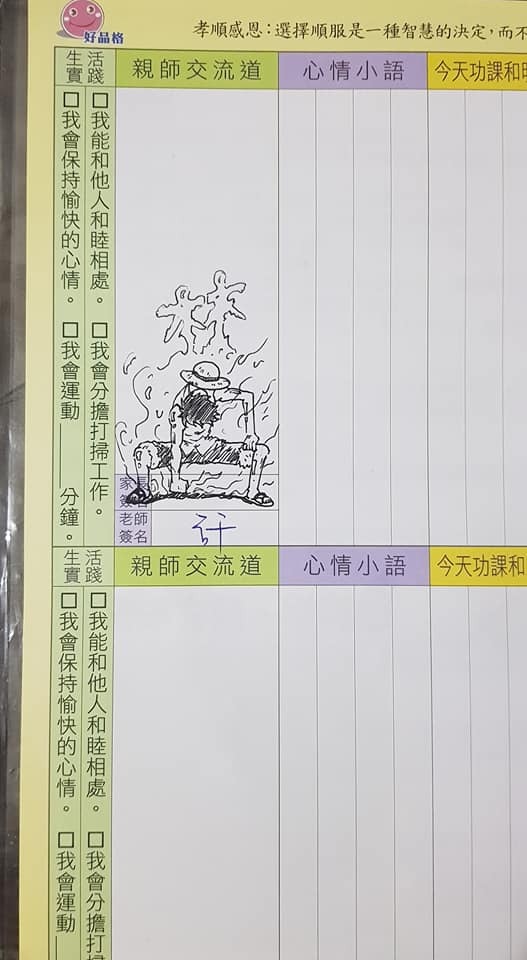 好品格
孝順感恩：選擇順服是一種智慧的決定，而不
生活
實踐
親師交流道
心情小語
今天功課和明
☐我能和他人和睦相處。 ☐我會分擔打掃工作。
☐我會保持愉快的心情。 ☐我會運動____分鐘。
林
家長
簽名
老師
簽名
許
生活
實踐
親師交流道
心情小語
今天功課和
☐我能和他人和睦相處。 ☐我會分擔打掃
☐我會保持愉快的心情。 ☐我會運動